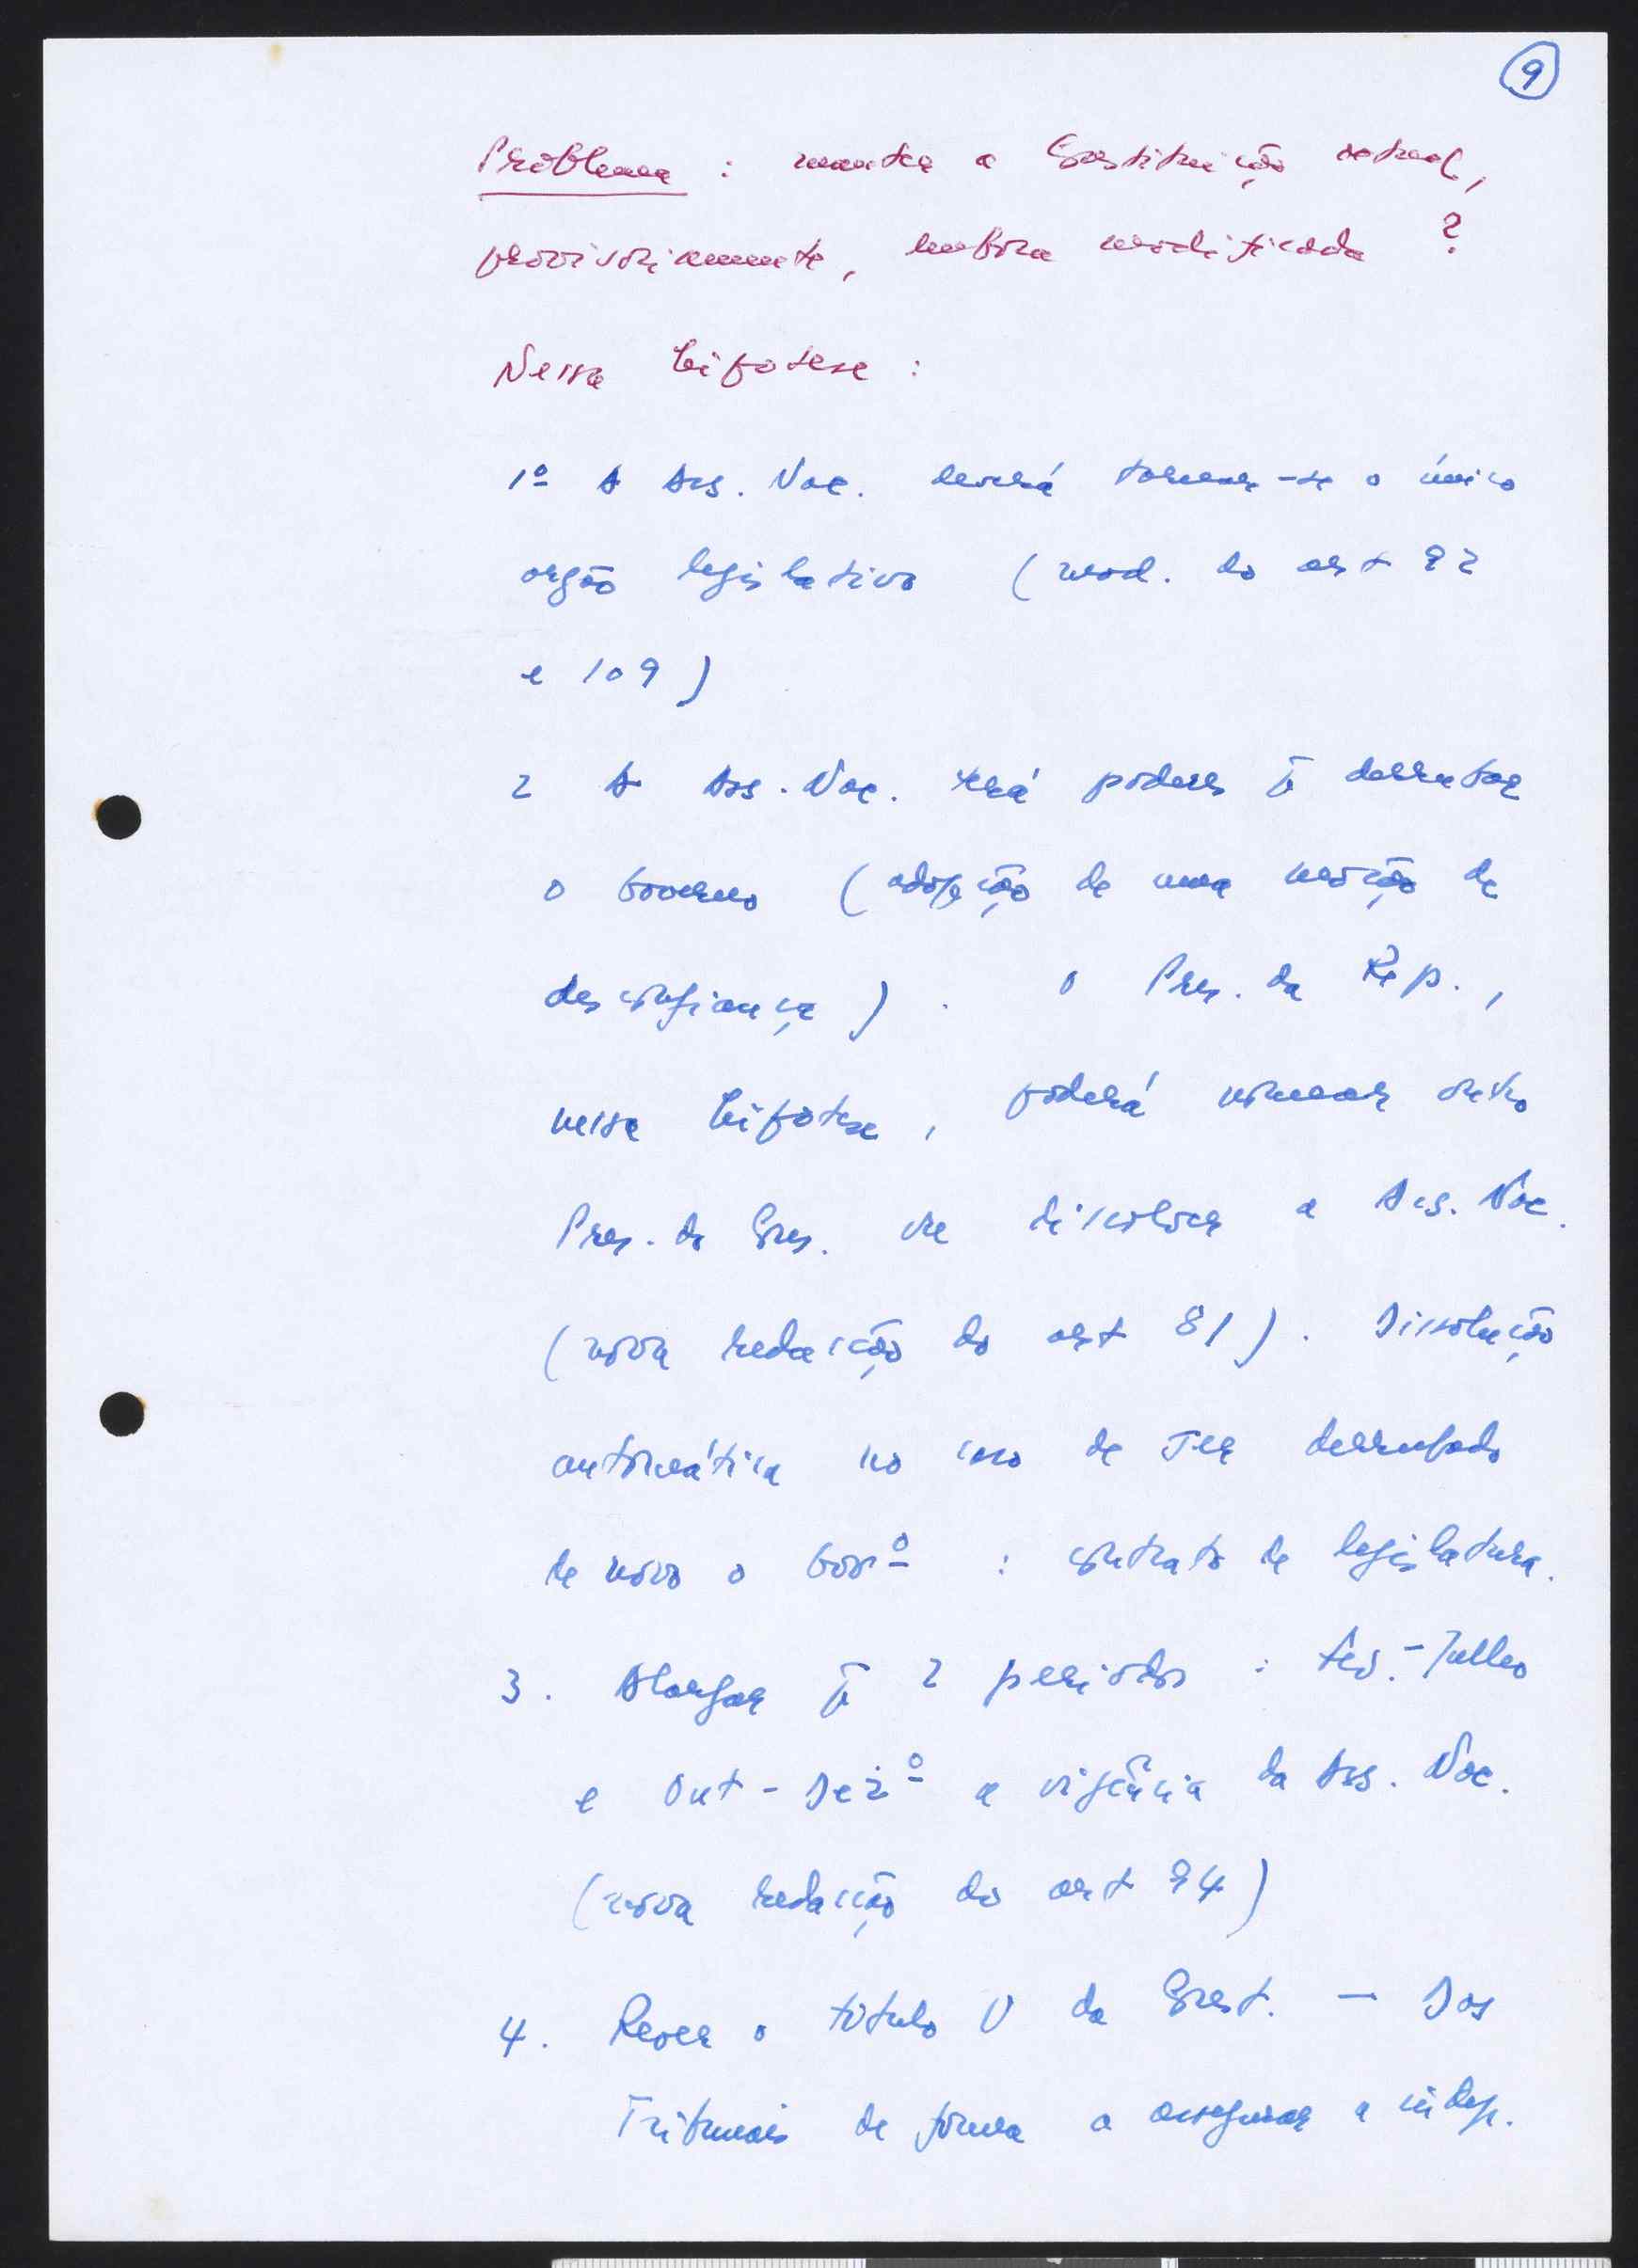 9
Problema : manter a Constituição actual,
provisoriamente, embora modificada ?
Nessa hipotese :
1º A Ass. Nac. deverá tornar-se o único
orgão legislativo ( mod. do art 92
e 109 )
2 A Ass. Nac. terá poderes p̄ derrubar
o Governo ( adopção de uma moção de
desconfiança ) . O Pres. da Rep. ,
nessa hipotese , poderá nomear outro
Pres. do Cons. ou dissolver a Ass. Nac.
( nova redacção do art 81 ) . Dissolução
automática no caso de ser derrubado
de novo o Govº : contrato de legislatura.
3 . Alargar p̄ 2 periodos : Fev. - Julho
e Out - Dezº a vigência da Ass. Nac.
( nova redacção do art 94 )
4 . Rever o titulo V da Const. — Dos
Tribunais de forma a assegurar a indep.